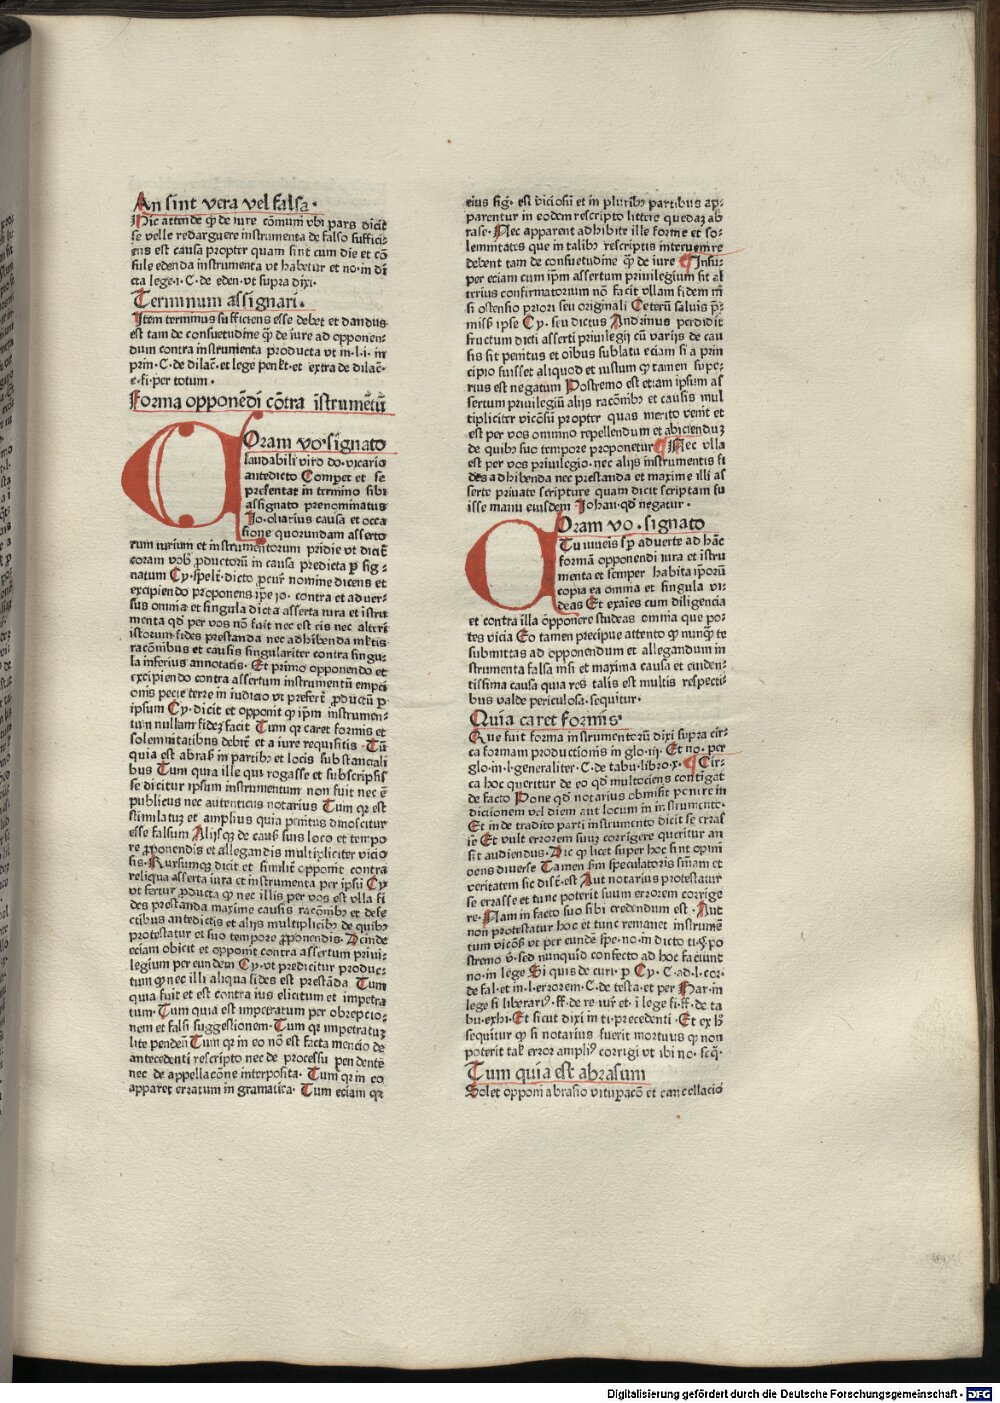 An sint vera vel falsa.
Hic attende qͥ de iure cōmuni vbi pars dicit
se velle redarguere instrumenta de falso suffici-
ens est causa propter quam sint cum die et cō
sule edenda instrumenta vt habetur et no. in di
cta lege. i. C. de eden. vt supra dixi.
Terminum assignari.
Item terminus sufficiens esse debet et dandus
est tam de consuetudine qͥ de iure ad opponen-
dum contra instrumenta producta vt in. l. i. in
prin. C. de dilac̄. et lege
e. fi. per totum.
Forma opponēdi cōtra īstrumētū
Coram vo. signato
laudabili viro do. vicario
antedicto Compet et se
presentat in termino sibi
assignato prenominatus
Jo. oliarius causa et occa
sione quorundam asserto
rum iurium et instrumentorum pridie vt dicit
coram vob productorū in causa predicta per sig-
natum Cy. spelt. dicto procur nomine dicens et
excipiendo proponens ipse io. contra et aduer-
sus omnia et singula dicta asserta iura et istru
menta qd per vos nō fuit nec est eis nec alteri
istorum fides prestanda nec adhibenda
racōnibus et causis singulariter contra singu-
la inferius annotatis. Et primo opponendo et
excipiendo contra assertum instrumentū empti
onis pecie terre in iudicio vt prefert productū per
ipsum Cy. dicit et opponit qͥ ipm instrumen-
tum nullam fidez facit Tum qr caret formis et
solemnitatibus debitis et a iure requisitis. Tū
quia est abras in partibus et locis substanciali
bus Tum quia ille qui rogasse et subscripsis
se dicitur ipsum instrumentum non fuit nec ē
publicus nec autenticus notarius Tum qr est
simulatuz et amplius quia penitus dinoscitur
esse falsum Alijsqz de causis suis loco et tempo
re proponendis et allegandis multipliciter vicio
sis. Rursumqz dicit et similit̄ opponit contra
reliqua asserta iura et instrumenta per ipsū Cy
vt fertur producta qͥ nec illis per vos est vlla fi
des prestanda maxime causis racōnibus et defe
ctibus antedictis et alijs multiplicibus de quibus
protestatur et suo tempore proponendis. Deinde
eciam obicit et opponit contra assertum priui-
legium per eundem Cy. vt predicitur produc-
tum qͥ nec illi aliqua fides est prestāda Tum
quia fuit et est contra ius elicitum et impetra
tum. Tum quia est impetratum per obrepcio-
nem et falsi suggestionem. Tum qr impetratuz
lite pendente Tum qr in eo nō est facta mencio de
antecedenti rescripto nec de processu pendente
nec de appellacōne interposita. Tum qr in eo
apparet erratum in gramatica. Tum eciam qr
eius sig. est viciosū et in pluribus partibus ap-
parentur in eodem rescripto littere quedaz ab
rase. Nec apparent adhibite ille forme et so-
lemnitates que in talibus rescriptis interuenire
debent tam de consuetudine qͥ de iure ¶ Insu-
per eciam cum ipm assertum priuilegium sit al
terius confirmatorium nō facit vllam fidem ni
si ostensio priori seu originali Ceterū saluis p̄-
missis ipse Cy. seu dictus Andrinus perdidit
fructum dicti asserti priuilegij cū varijs de cau
sis sit penitus et oībus sublatu eciam si a prin
cipio fuisset aliquod et iustum qͥ tamen supe-
rius est negatum Postremo est etiam ipsum as
sertum priuilegiū alijs racōnibus et causis mul
tipliciter viciosū propter quas merito venit et
est per vos omnino repellendum et abiciendum
de quibus suo tempore proponetur ¶ Nec vlla
est per vos priuilegio. nec alijs instrumentis fi
des adhibenda nec prestanda et maxime illi as
serte priuate scripture quam dicit scriptam fu
isse manu eiusdem Johan. qd negatur.
Coram vo. signato
Tu iuuenis semper aduerte ad hāc
formā opponendi iura et istru
menta et semper habita ipsorū
copia ea omnia et singula vi-
deas Et exaies cum diligencia
et contra illa opponere studeas omnia que po-
tes vicia Eo tamen precipue attento qͥ nunqz te
submittas ad opponendum et allegandum in
strumenta falsa nisi ex maxima causa et euiden-
tissima causa quia res talis est multis respecti-
bus valde periculosa. sequitur.
Quia caret formis.
Que fuit forma instrumentorū dixi supra cir-
ca formam productionis in glo. iij. Et no. per
glo. in. l. generaliter. C. de tabu. libro. x. ¶ Cir-
ca hoc queritur de eo qd multociens contigat
de facto Pone qd notarius obmisit ponere in
dictionem vel diem aut locum in instrumento.
Et inde tradito parti instrumento dicit se erras
se Et vult errorem suuz corrigere queritur an
sit audiendus. Dic qͥ licet super hoc sint opini
oens diuerse Tamen secundum speculatoris summam et
veritatem sic Aut notarius protestatur
se errasse et tunc poterit suum errorem corrige
re. Nam in facto suo sibi credendum est. Aut
non protestatur hoc et tunc remanet instrumē
tum vt per eundē spe. no. in dicto ti. §. po
stremo. v. sed nunquid confecto ad hoc faciunt
no. in lege Si quis de curi. per Cy. C. ad. l. cor.
de fal. et in. l. errorem. C. de testa. et per Bar. in
lege si ff. de re. iur. et. i lege fi. ff. de ta
bu. exhi. Et sicut dixi in ti. precedenti. Et ex
sequitur qͥ si notarius fuerit mortuus qͥ non
poterit talis error amplius corrigi vt ibi no. seq.
Tum quia est abrasum
Solet opponi abrasio vituperacō et cancellacio
Digitalisierung gefördert durch die Deutsche Forschungsgemeinschaft - DFG